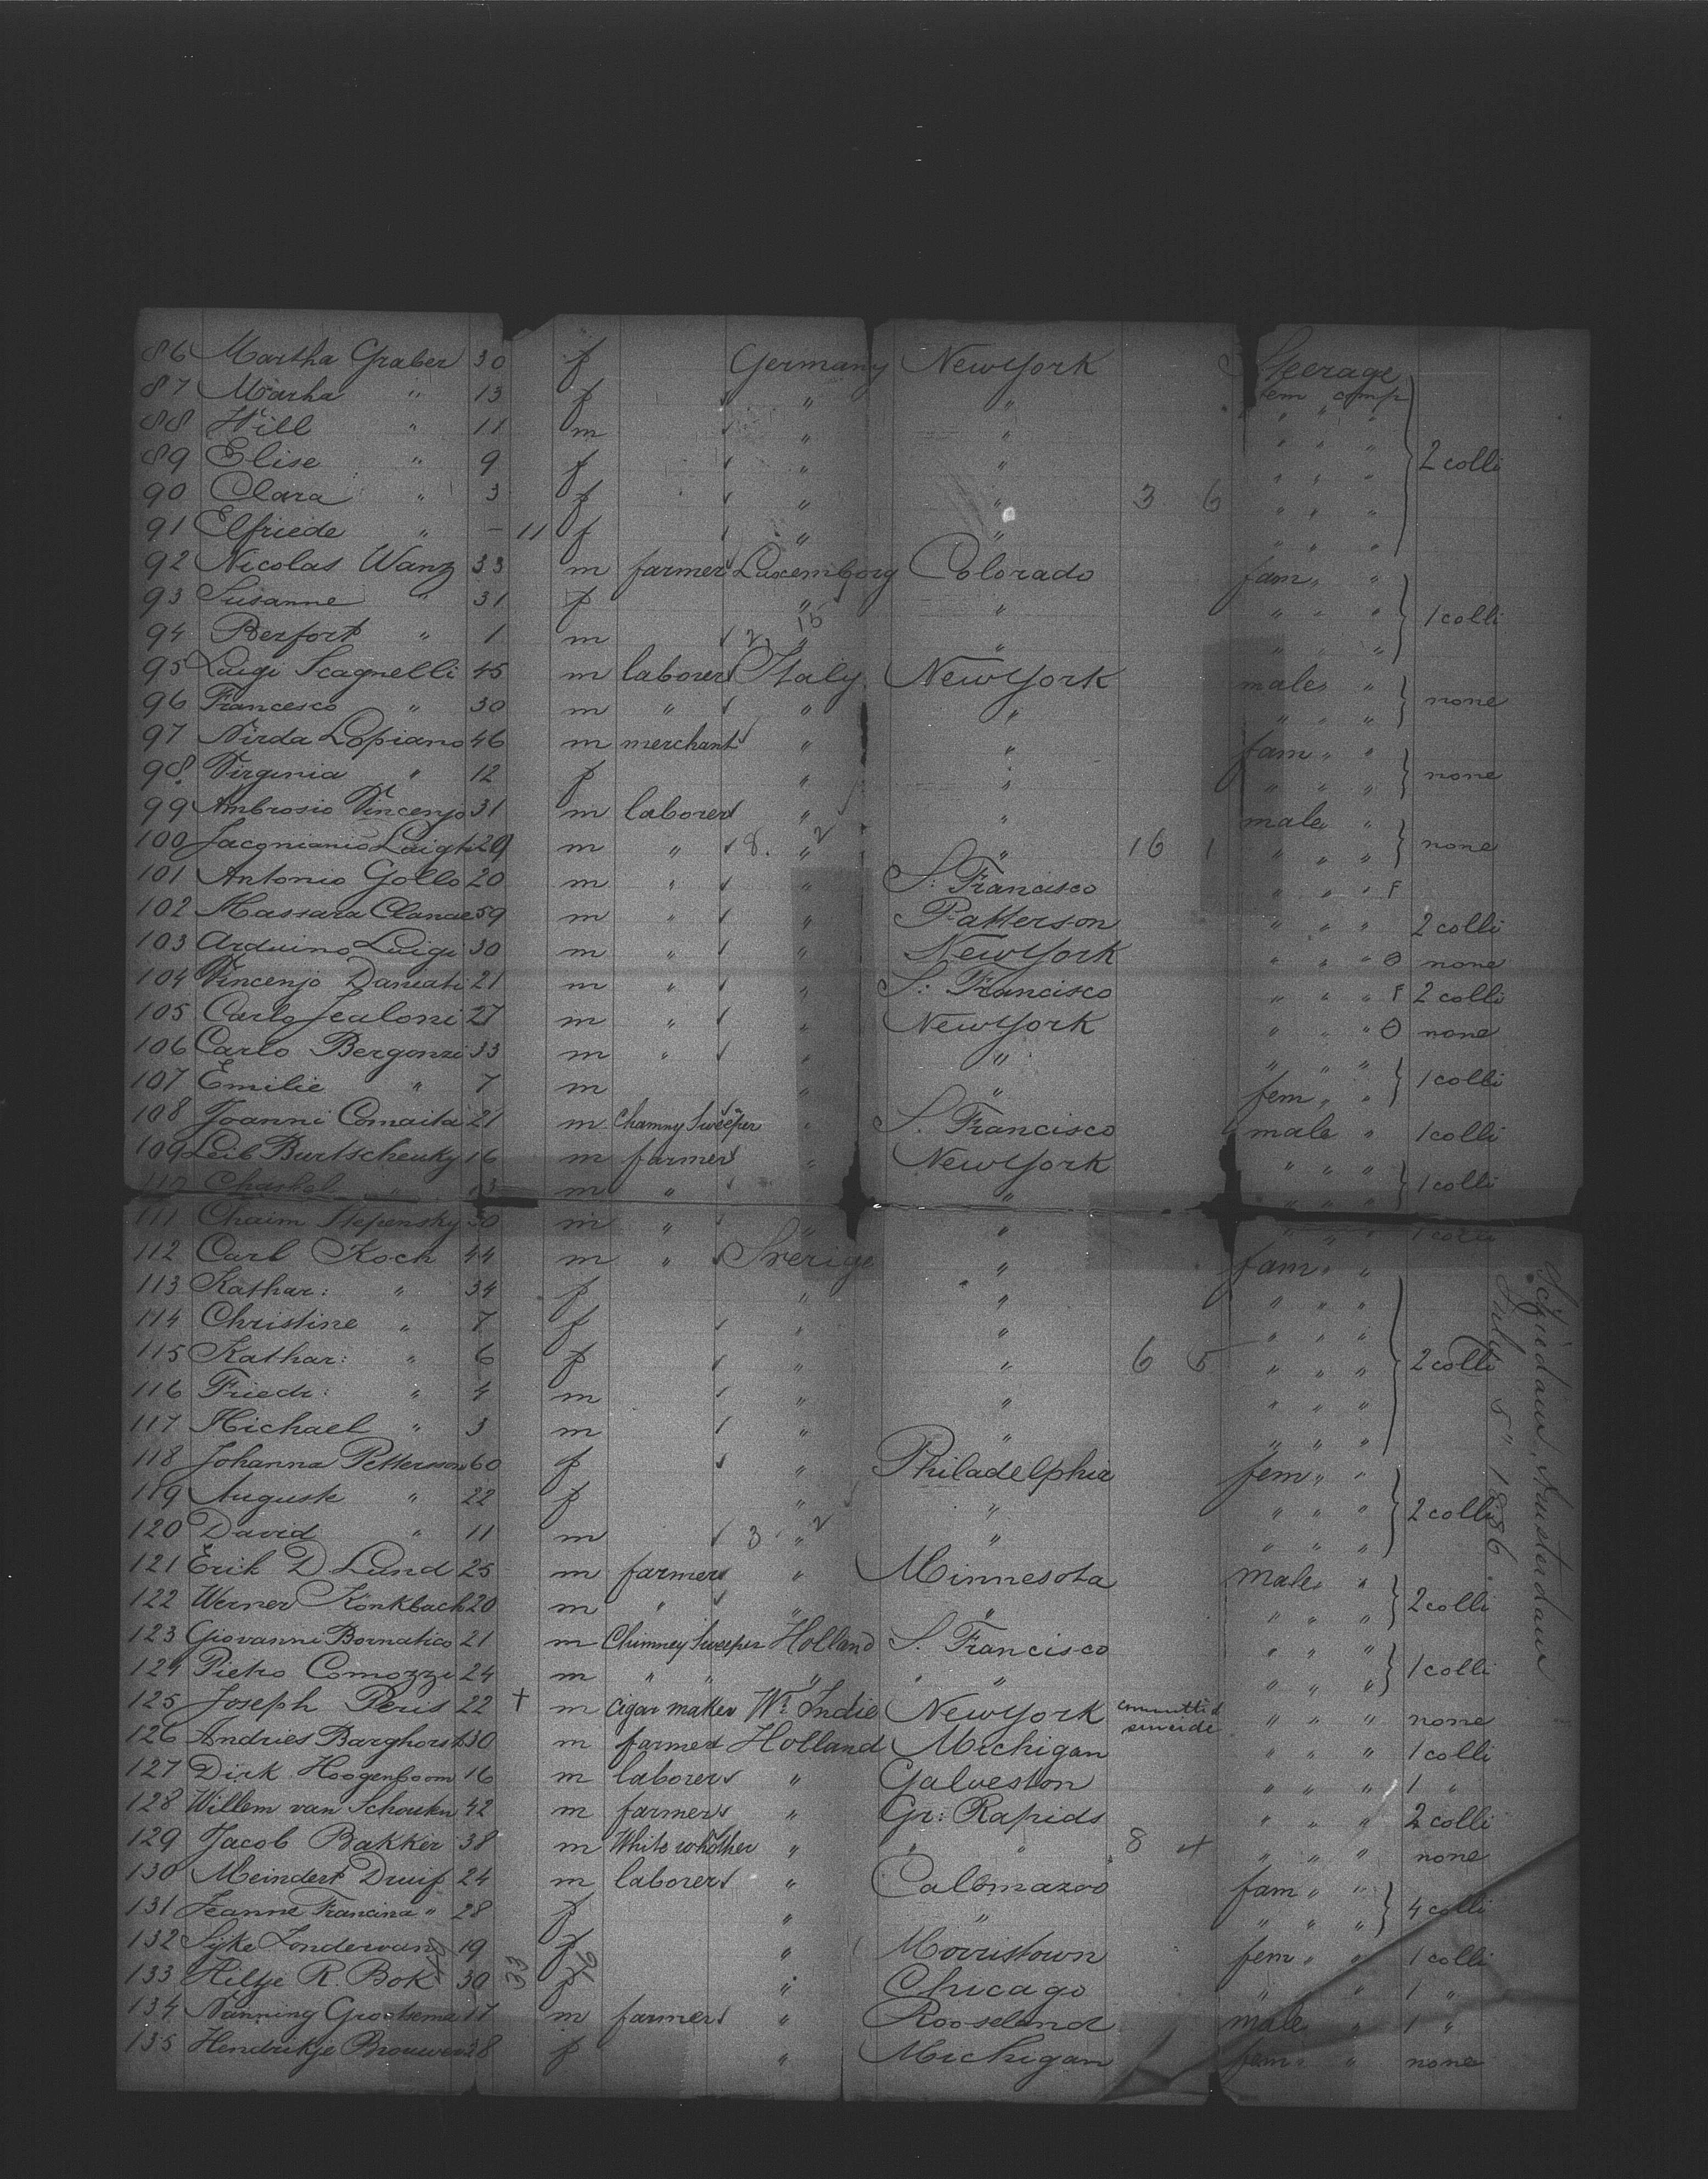 86 Martha Graber 30 f Germany New York Steerage
87 Marha " 13 f " " fem comp
88 Will " 11 m " " " " "
89 Elise " 9 f " " " " " 2 colli
90 Clara " 3 f " " 3 6 " " "
91 Elfriede " - 11 f " " " " "
92 Nicolas Wanz 33 m farmer Luxemborg Colorado fam " "
93 Susanne " 31 f " " " " " 1 colli
94 Berfort " 1 m 2 15 " " " " "
95 Luigi Scagnelli 45 m laborer Italy New York males "
96 Francesco " 30 m " " " " " " none
97 Nirda Lopiano 46 m merchant " " fam " "
98 Virginia " 12 f " " " " " none
99 Ambrosio Vincenjo 31 m laborer " " male "
100 Luight 29 m " 8. " 2 " 16 1 " " " none
101 Antonio Gollo 20 m " " S: Francisco " " " F
102 Massara 59 m " " Patterson " " " 2 colli
103 Arduino Luigi 30 m " " New York " " " O none
104 Vincenjo Damiati 21 m " " S: Francisco " " " F 2 colli
105 Carlo Jealoni 27 m " " New York " " " O none
106 Carlo Bergonzi 33 m " " " " " "
107 Emilie " 7 m " " fem " " 1 colli
108 Joanni Comaita 21 m Chamny Sweeper " S. Francisco male " 1 colli
109 Leib Burtschenky 16 m farmer " New York " " "
110 Chaskel " 13 m " " " " " 1 colli
111 Chaim Stepensky 30 m " " " " " " 1 colli
112 Carl Koch 44 m " Sverige " fam " "
113 Kathar: " 34 f " " " " "
114 Christine " 7 f " " " " "
115 Kathar: " 6 f " " 6 5 " " " 2 colli
116 Friedr: " 4 m " " " " "
117 Michael " 3 m " " " " "
118 Johanna Petterson 60 f " Philadelphia fem " "
119 Auguste " 22 f " " " " " 2 colli
120 David " 11 m 3 " 2 " " " "
121 Erik D Lund 25 m farmer " Minnesota males "
122 Werner Konkbach 20 m " " " " " " 2 colli
123 Giovanni Bornatico 21 m Chimney Sweeper Holland S. Francisco " " "
124 Pietro Comozzi 24 m " " " " " " " " 1 colli
125 Joseph Peris 22 + m cigar maker W: Indie New York committed suicide " " " none
126 Andries Barghorst 30 m farmer Holland Michigan " " " 1 colli
127 Dirk Hoogenboom 16 m laborer " Galveston " " " 1 "
128 Willem van Schouten 42 m farmer " Gr: Rapids " " " 2 colli
129 Jacob Bakker 38 m White " " " 8 4 " " " none
130 Meindert Druif 24 m laborer " Calomazoo fam " "
131 Jeanne Francina " 28 f " " " " " 4 colli
132 Sijke Zondervan 19 f " Morristown fem " " 1 colli
133 Hiltje R. Bok 30 33 f " Chicago " " 1 "
134 Nanning Grootsema 17 m farmer " Rooseland male " 1 "
135 Hendrikje Brouwer 28 f " Michigan fem " " none
Schiedam, Amsterdam
July 5" 1886.